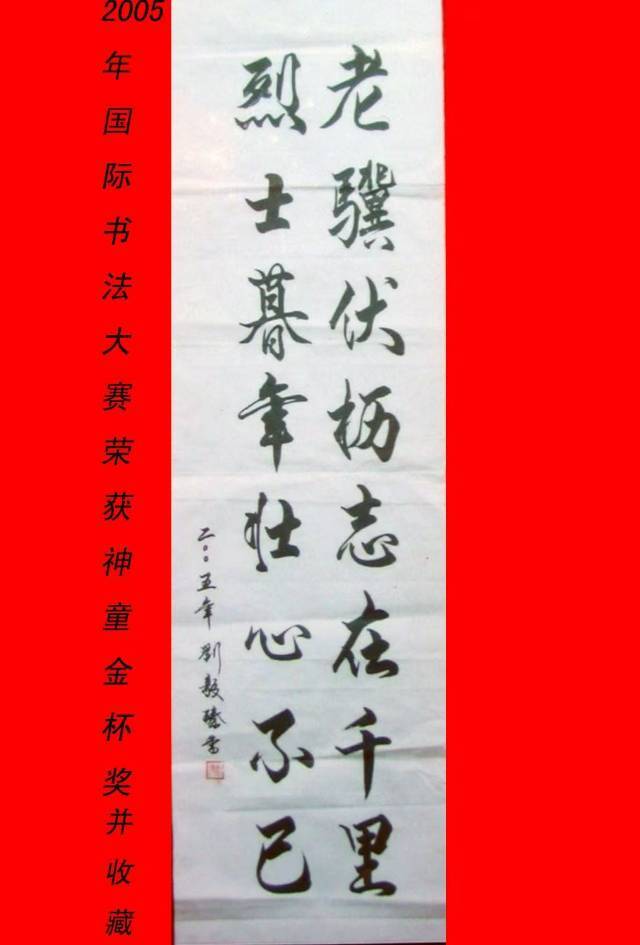 2005年国际书法大赛荣获神童金杯奖并收藏
老骥伏枥志在千里
烈士暮年壮心不已
二〇〇五年刘毅